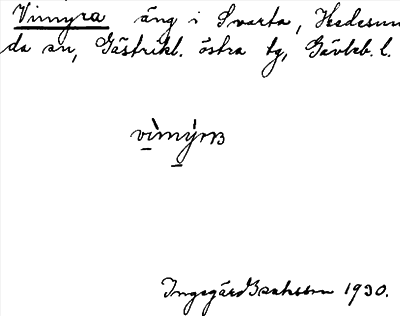 Vimyra äng i Svarta, Hedesun
da sn, Gästrikl. östra tg, Gävleb. l.
vìmýrʙ
Ingegärd Isaksson 1930.